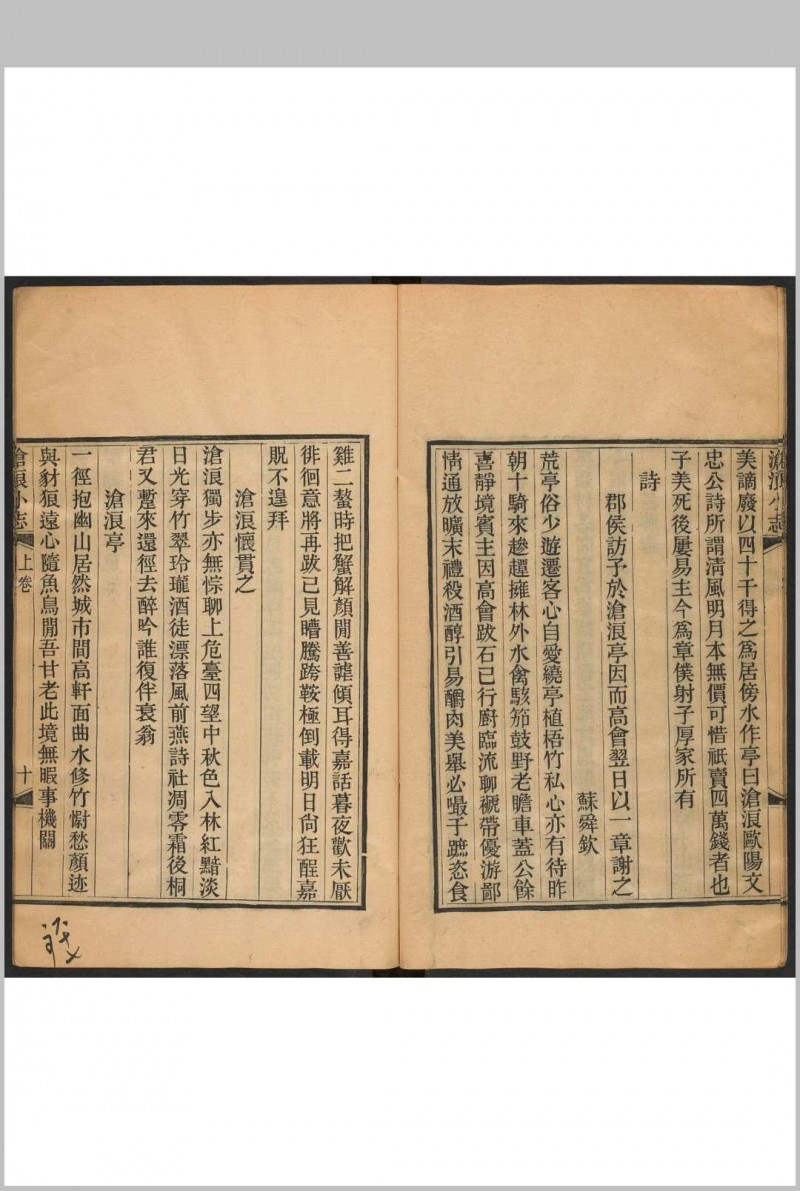 滄浪小志
美謫廢以四十千得之爲居傍水作亭曰滄浪歐陽文
忠公詩所謂淸風明月本無價可惜祇賣四萬錢者也
子美死後屢易主今爲章僕射子厚家所有
詩
郡侯訪予於滄浪亭因而高會翌日以一章謝之
蘇舜欽
荒亭俗少遊遷客心自愛繞亭植梧竹私心亦有待昨
朝十騎來趁趯擁林外水禽駭笳鼓野老瞻車蓋公餘
喜靜境賓主因高會跋石已行廚臨流聊褫帶優游鄙
情通放曠末禮殺酒醇引易釂肉美舉必嘬于蹠恣食
雞二螯時把蟹解顏閒善謔傾耳得嘉話暮夜歡未厭
徘徊意將再跋已見瞢騰跨鞍極倒載明日尙狂酲嘉
貺不遑拜
滄浪懷貫之
滄浪獨步亦無悰聊上危臺四望中秋色入林紅黯淡
日光穿竹翠玲瓏酒徒漂落風前燕詩社凋零霜後桐
君又蹔來還徑去醉吟誰復伴衰翁
滄浪亭
一徑抱幽山居然城市間高軒面曲水修竹慰愁顏迹
與豺狼遠心隨魚鳥閒吾甘老此境無暇事機關
滄浪小志
上卷
十